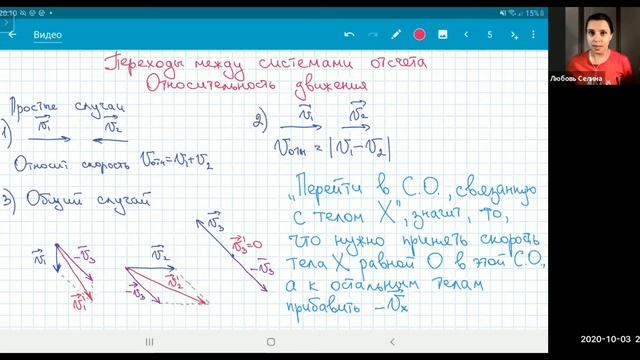 20:10
15%
Видео
5
Любовь Селина
Переходы между системами отсчета
Относительность движения
Простые случаи
1) v⃗₁ v⃗₂
Относит скорость Vотн=v₁+v₂
2) v⃗₁ v⃗₂
Vотн = |v₁-v₂|
3) Общий случай
v⃗₁ -v⃗₃ v⃗₁'
v⃗₂ -v⃗₃ v⃗₂'
v⃗₃ v⃗₃=0 -v⃗₃
„Перейти в С.О., связанную
с телом X", значит, то,
что нужно принять скорость
тела X равной 0 в этой С.О,
а к остальным телам
прибавить -v⃗ₓ
2020-10-03 2